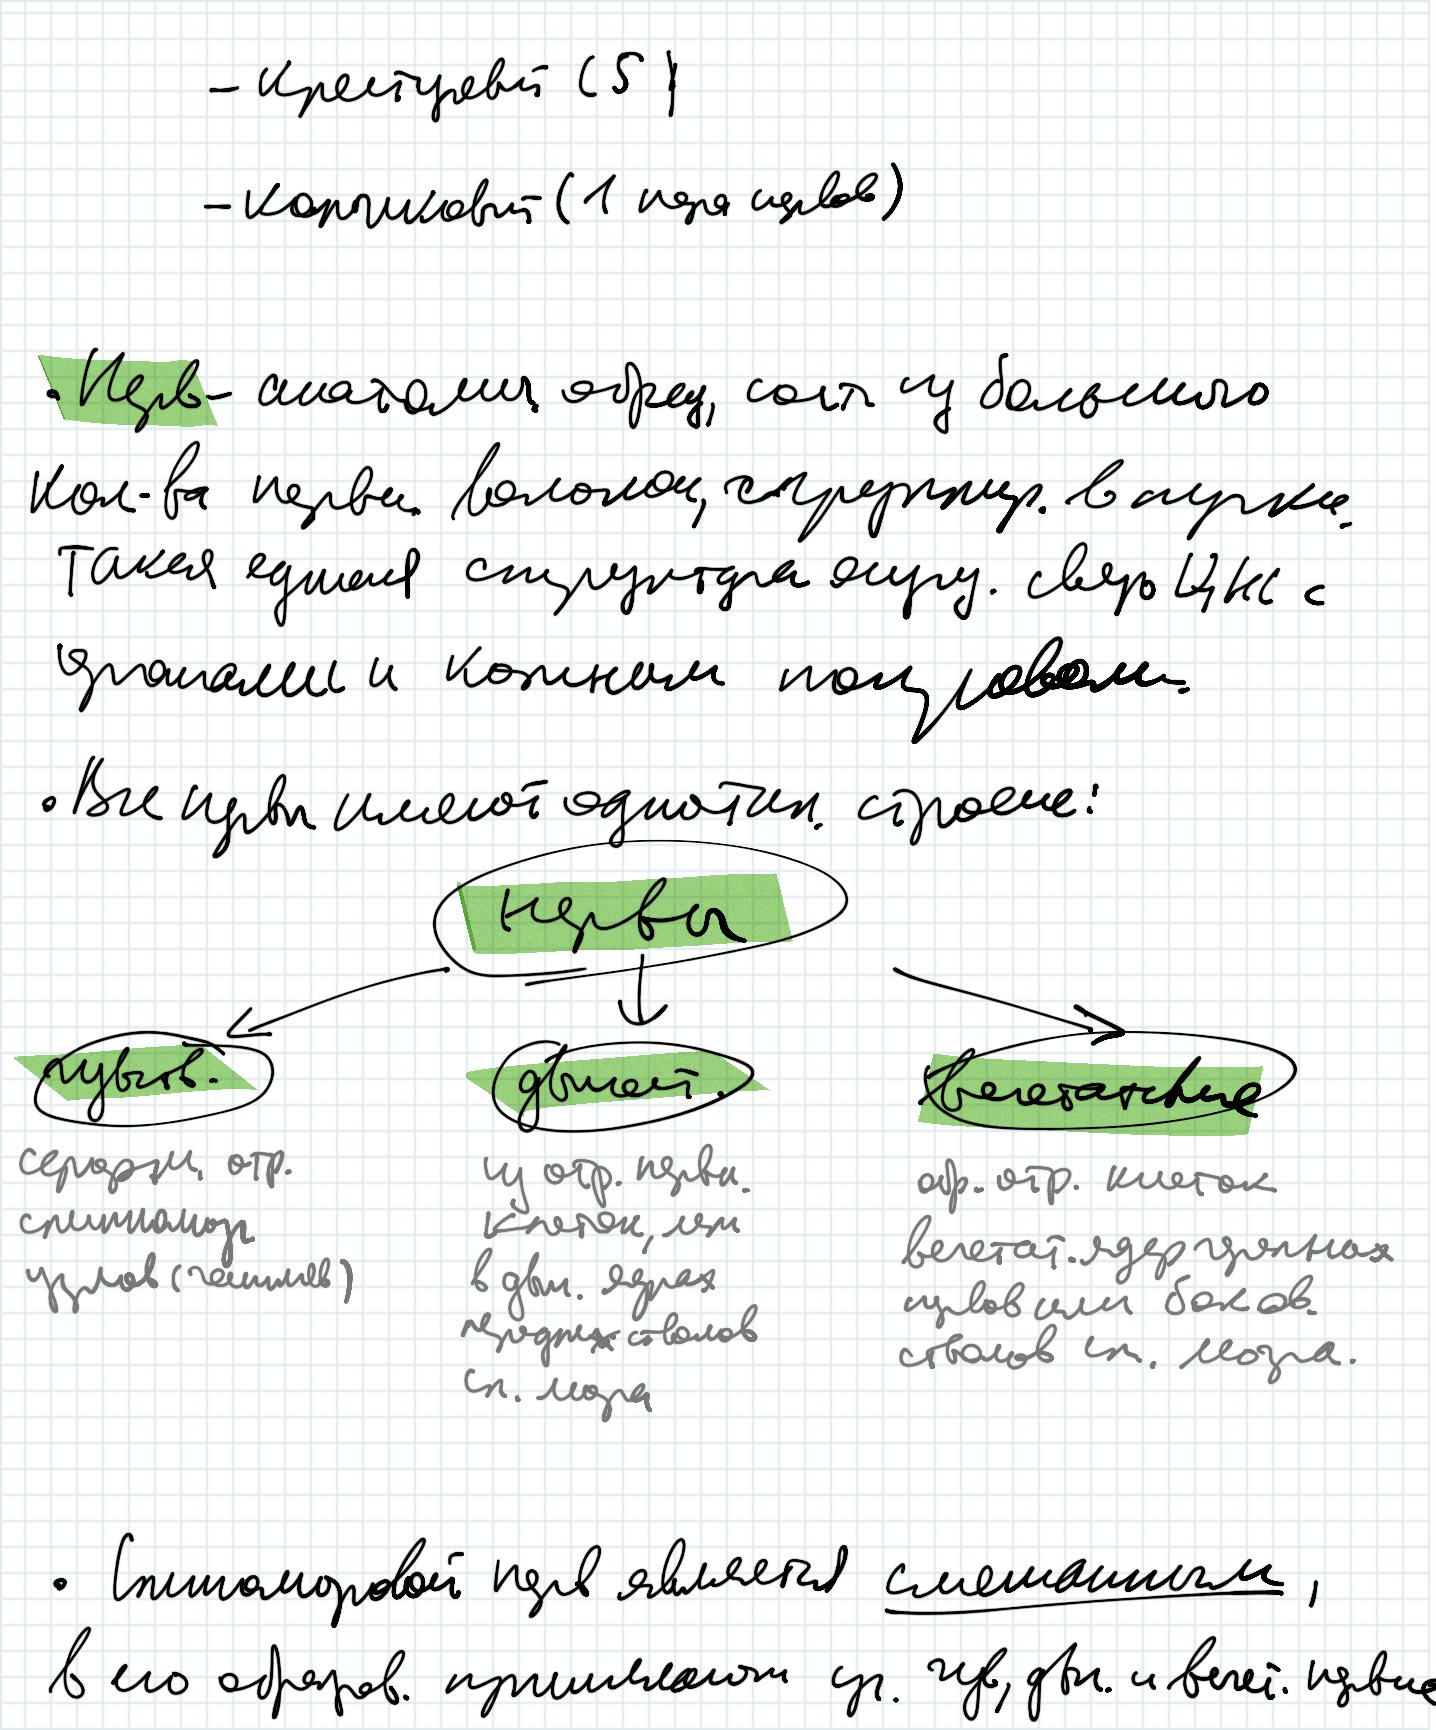 - Крестцовый (5)
- Копчиковый (1 пара нервов)
• Нерв - анатомич. образ, сост из большого
кол-ва нервн. волокон, сгруппир. в пучки.
Такая единая структура осущ. связь ЦНС с
органами и кожным покровом.
• Все нервы имеют однотип. строение:
нервы
чувств.
двигат.
вегетативные
отр.
спинномозг
узлов (ганглиев)
из отр. нервн.
клеток, леж
в двиг. ядрах
передних столбов
сп. мозга
обр. отр. клеток
вегетат. ядер черепных
нервов или боков.
столбов сп. мозга.
• Спинномозговой нерв является смешанным,
в его образов. принимают уч. чув, дв. и вегет. нервные